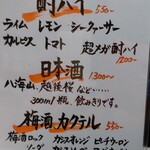 酎ハイ 550~
ライム レモン シークァーサー
カルピス トマト 超メガ酎ハイ
1200~
日本酒 1300~
八海山、越後桜 など……
300ml瓶、飲みきりです。
梅酒 カクテル 550~
梅酒ロック カシスオレンジ ピーチウーロン